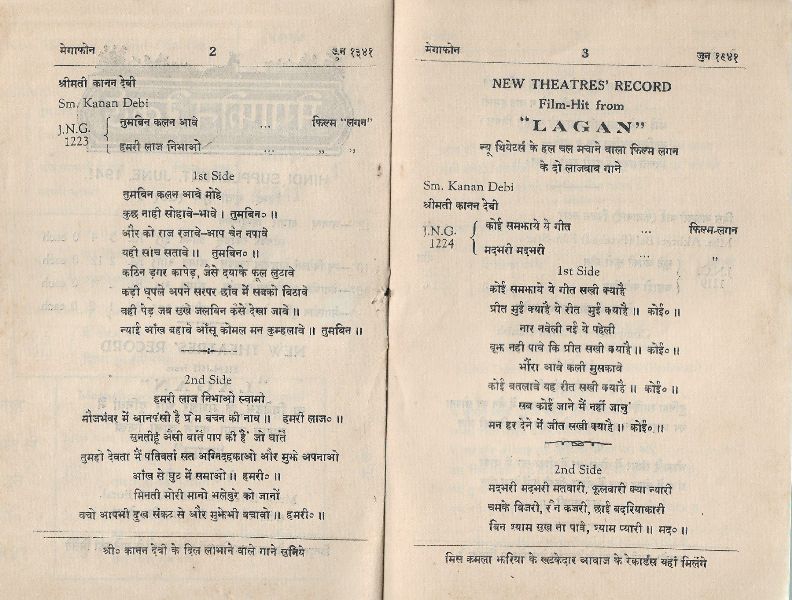 मेगाफोन 2 जुन १३४१
श्रीमती कानन देबी
Sm. Kanan Debi
J.N.G. 1223 { तुमबिन कलन आवे ... फिल्म "लगन"
हमरी लाज निभाओ ... " "
1st Side
तुमबिन कलन आवे मोहे
कुछ नाही सोहावे-भावे । तुमबिन० ॥
और को राज रजावे-आप चैन नपावे
यही सांच सतावे ॥ तुमबिन० ॥
कठिन डगर कापेड़, जैसे दयाके फूल लुटावे
कड़ी धुपले अपने सरपर छाँव में सबको बिठावे
वही पेड़ जब सूखे जलबिन कैसे देखा जावे ॥
न्याई आँख बहावे आँसू कोमल मन कुम्हलावे ॥ तुमबिन ॥
2nd Side
हमरी लाज निभाओ स्वामी
मौजभंवर में आनफंसी है प्रेम बंचन की नाव ॥ हमरी लाज० ॥
सुनतीहूँ ऐसी बातें पाप की हैं जो घातें
तुमहो देवता मैं पतिवर्ता सत अग्निदहकाओ और मुझे अपनाओ
आँख से घुट में समाओ ॥ हमरी० ॥
मिनती मोरी मानो भलेबुरे को जानों
बचो आपभी दुख संकट से और मुझेभी बचावो ॥ हमरी० ॥
श्री० कानन देवी के दिल लोभाने वाले गाने सुनिये
मेगाफोन 3 जुन १९४१
NEW THEATRES' RECORD
Film-Hit from
"LAGAN"
न्यू थियेटर्स के हल चल मचाने वाला फिल्म लगन
के दो लाजवाब गाने
Sm. Kanan Debi
श्रीमती कानन देबी
J.N.G. 1224 { कोई समझाये ये गीत ... फिल्म-लगन
मदभरी मदभरी "
1st Side
कोई समझाये ये गीत सखी क्याहै
प्रीत मुई क्याहै ये रीत मुई क्याहै ॥ कोई० ॥
नार नवेली नई ये पहेली
बूझ नही पावे कि प्रीत सखी क्याहै ॥ कोई० ॥
भौंरा आवे कली मुसकावे
कोई बतलावे यह रीत सखी क्याहै ॥ कोई० ॥
सब कोई जाने मैं नहीं जानुं
मन हर देने में जीत सखी क्याहै ॥ कोई० ॥
2nd Side
मदभरी मदभरी मतवारी, फूलवारी क्या न्यारी
चमके बिजरी, रैन कजरी, छाई बदरियाकारी
बिन श्याम सुख ना पावै, श्याम प्यारी ॥ मद० ॥
मिस कमला झरिया के खटकेदार आवाज के रेकार्डस यहाँ मिलेंगे